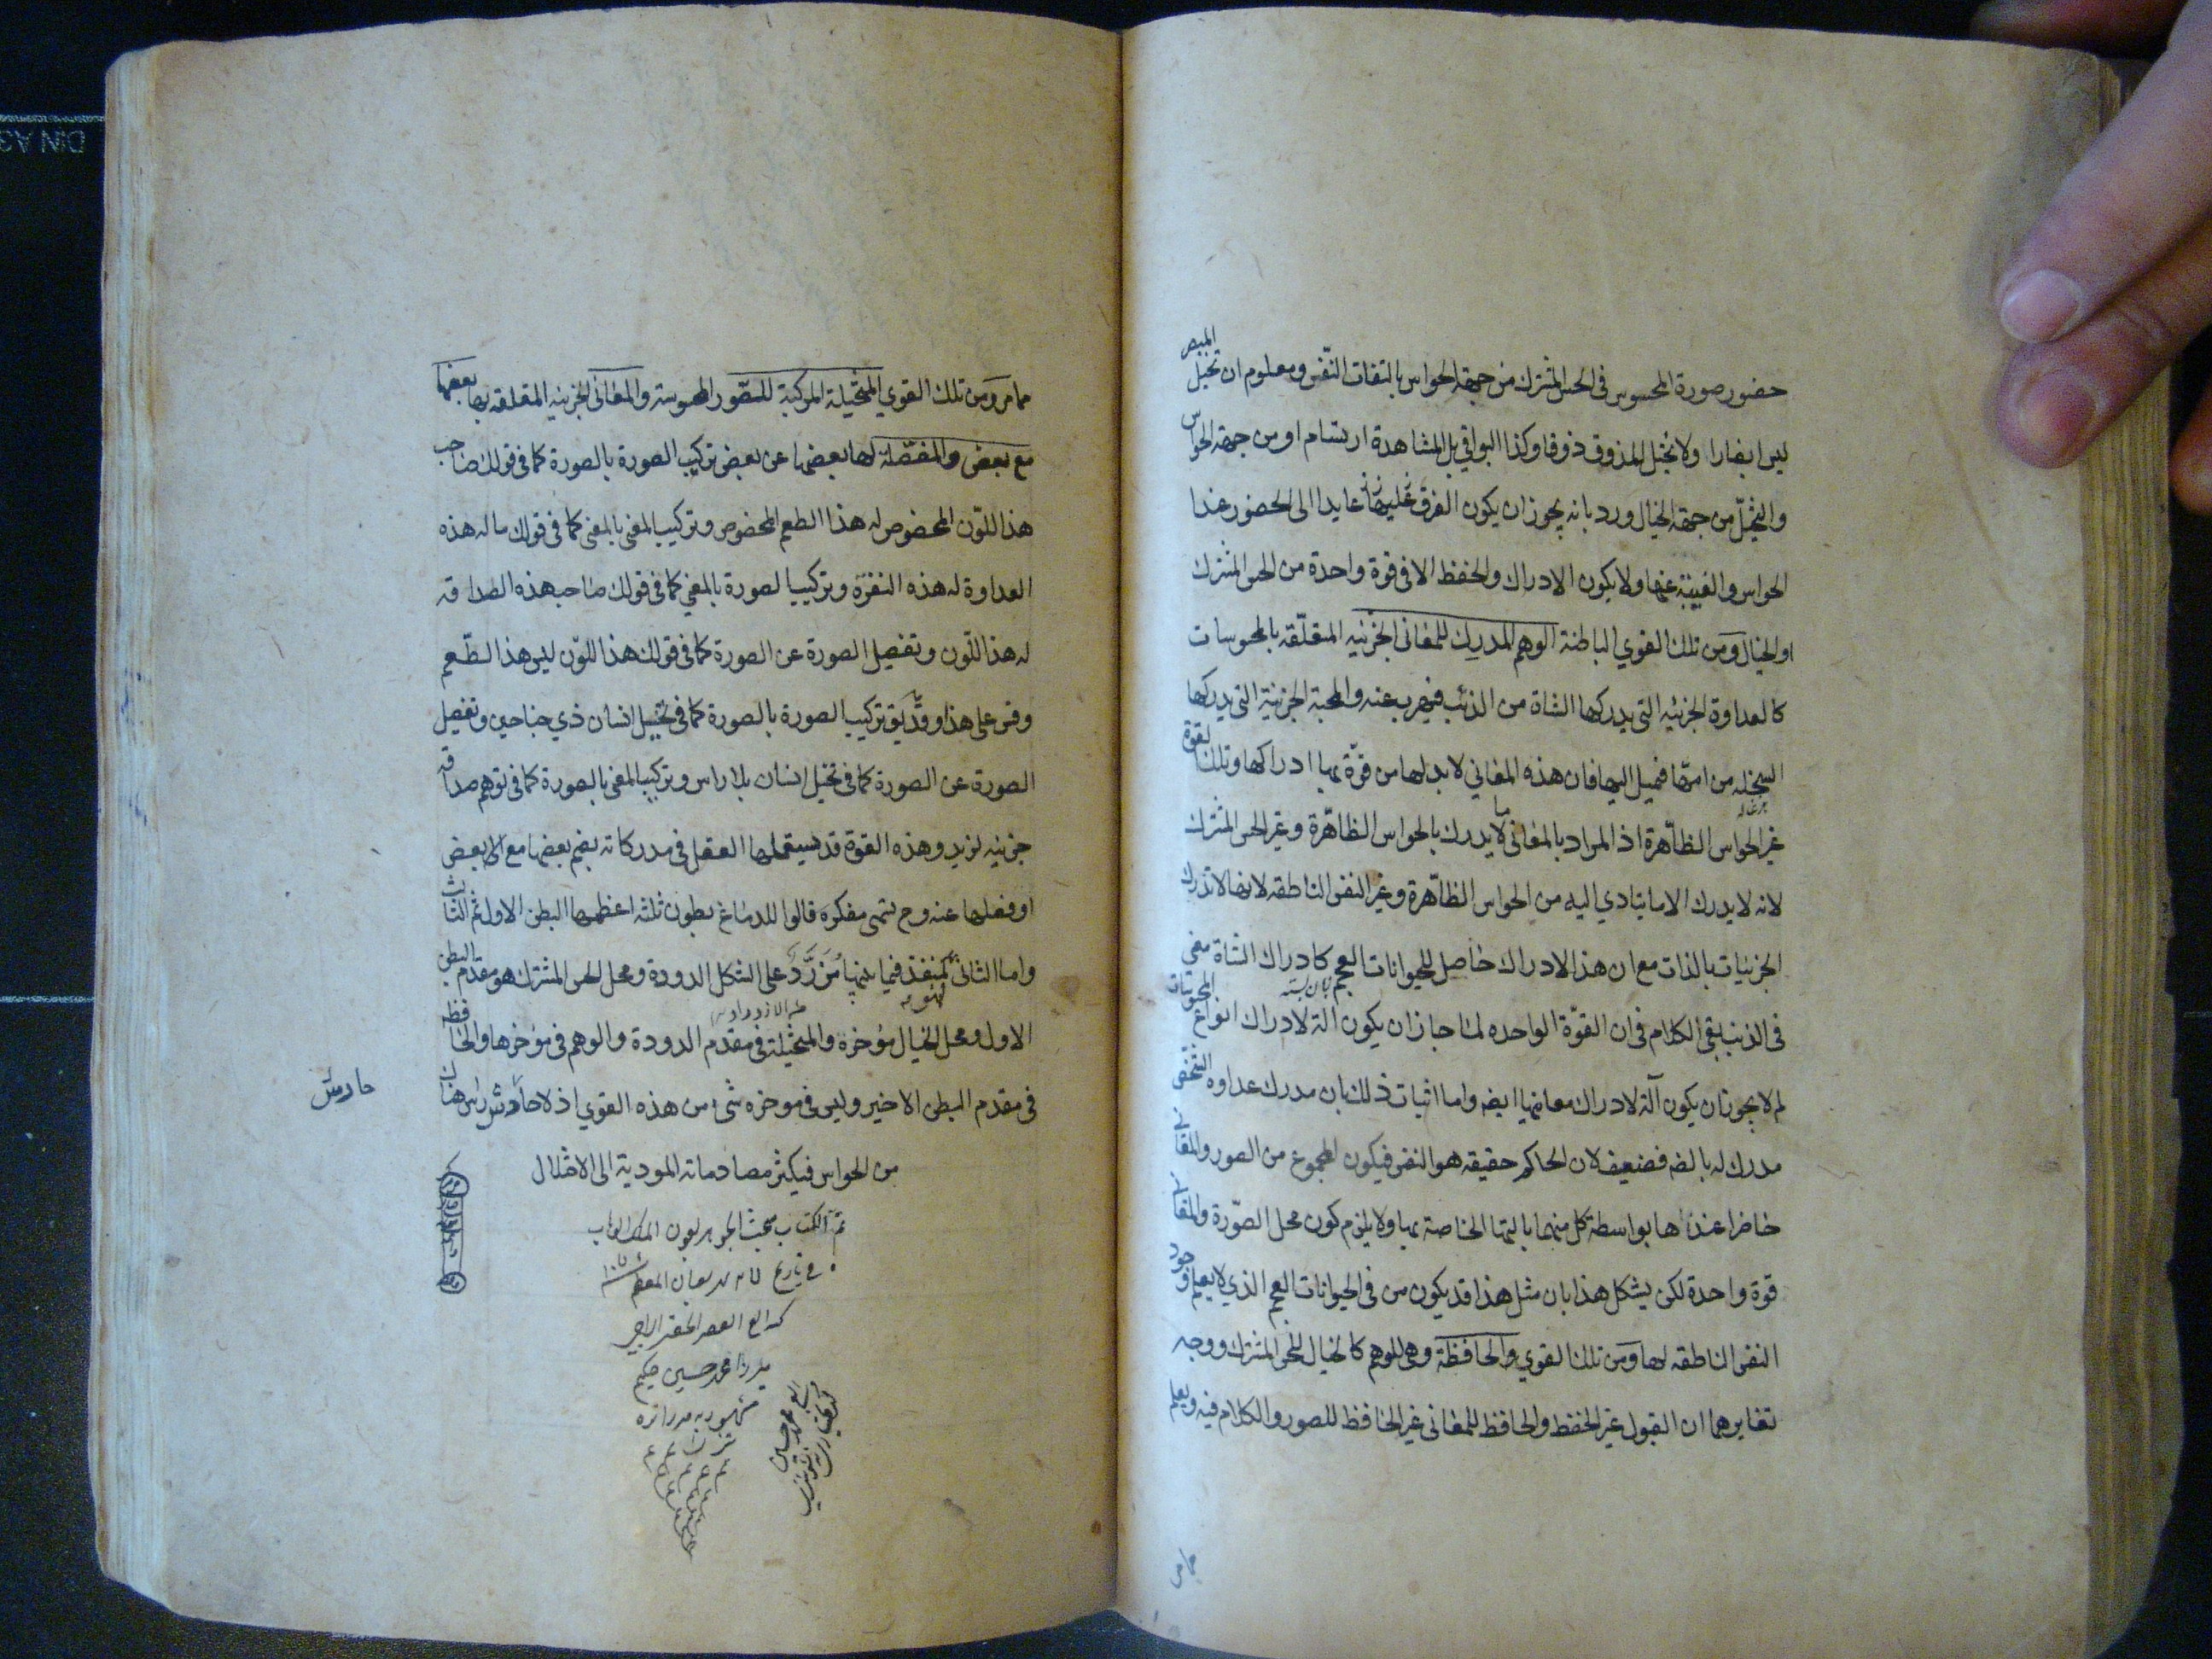 حضور صورة المحسوس فى الحس المشترك من جهة الحواس بالتفات النّفس ومعلوم ان تخيل المبصر
ليس ابصارا ولا تخيل المذوق ذوقا وكذا البواقي بل المشاهدة ارتسام او من جهة الحواس
والتخيّل من جهة الخيال ورد بانه يجوز ان يكون الفرق عايدا الى الحضور عند
الحواس والغيبة عنها ولا يكون الادراك والحفظ الا فى قوة واحدة من الحس المشترك
او الخيال ومن تلك القوي الباطنة الوهم المدرِك للمعانى الجزئيه المتعلّقه بالمحسوسات
كالعداوة الجزئيه التى يدركها الشاة من الذئب فيهرب عنه والمحبة الجزئية التى يدركها
السخله من امّها فتميل اليها فان هذه المعاني لابد لها من قوّة بها ادراكها وتلك القوة
بزغاله
غير الحواس الظاهرة اذ المراد بالمعانى ما لا يدرك بالحواس الظاهرة وغير الحس المشترك
لانه لا يدرك الا ما يتادي اليه من الحواس الظاهرة وغير النفس الناطقه لانها لا تدرك
الجزئيات بالذات مع ان هذا الادراك حاصل للحيوانات العجم كادراك الشاة معنى
فى الذئب بقى الكلام فى ان القوّة الواحده لما جاز ان يكون آلة لادراك انواع المحسوسات
لم لا يجوز ان يكون آلة لادراك معانيها ايضه واما اثبات ذلك بان مدرك عداوه الشخص
مدرك له بالضه فضعيف لان الحاكم حقيقه هو النفس فيكون المجموع من الصور والمعانى
حاضرا عندها بواسطة كل منهما بآلتها الخاصة بها ولا يلزم كون محل الصّورة والمعانى
قوة واحدة لكن يشكل هذا بان مثل هذا قد يكون من فى الحيوانات العجم الذي لا يعلم وجود
النفس الناطقه لها ومن تلك القوي والحافظة وهى للوهم كالخيال للحس المشترك ووجه
تغايرهما ان القبول غير الحفظ والحافظ للمعانى غير الحافظ للصور والكلام فيه ويعلم
مما مر
مما مر ومن تلك القوي المتخيلة المركبة للصّور المحسوسة والمعانى الجزئيه المتعلقه بها بعضها
مع بعض والمفصّلة لها بعضها عن بعض تركيب الصورة بالصورة كما فى قولك صاحب
هذا اللّون المخصوص له هذا الطعم المخصوص وتركيب المعنى بالمعنى كما فى قولك ما له هذه
العداوة له هذه النفرة وتركيب الصورة بالمعني كما فى قولك صاحب هذه الصداقه
له هذا اللّون وتفصيل الصورة عن الصورة كما فى قولك هذا اللّون ليس هذا الطّعم
وقس على هذا وقد يق تركيب الصورة بالصورة كما فى تخيل انسان ذي جناحين وتفصيل
الصورة عن الصورة كما فى تخيل انسان بلا راس وتركيب المعنى بالصورة كما فى توهم صداقه
جزئيه لزيد وهذه القوة قد يستعملها العقل فى مدركاته بضم بعضها مع الى بعض
او فصلها عنه وح تسمى مفكره قالوا للدماغ بطون ثلثه اعظمها البطن الاول ثم الثالث
واما الثانى كمنفذ فيما بينهما مُزَرَّدٌ على الشكل الدودة ومحل الحس المشترك هو مقدم البطن
الاول ومحل الخيال مؤخره والمتخيلة فى مقدم الدودة والوهم فى مؤخرها والحافظه
فى مقدم البطن الاخير وليس فى موخره شىء من هذه القوي اذ لا حارس هناك
حارس
من الحواس فيكثر مصادماته المودية الى الاختلال
تم الكتاب مبحث الجواهر بعون الملك الوهاب
ميرزا محمد حسين حكيم